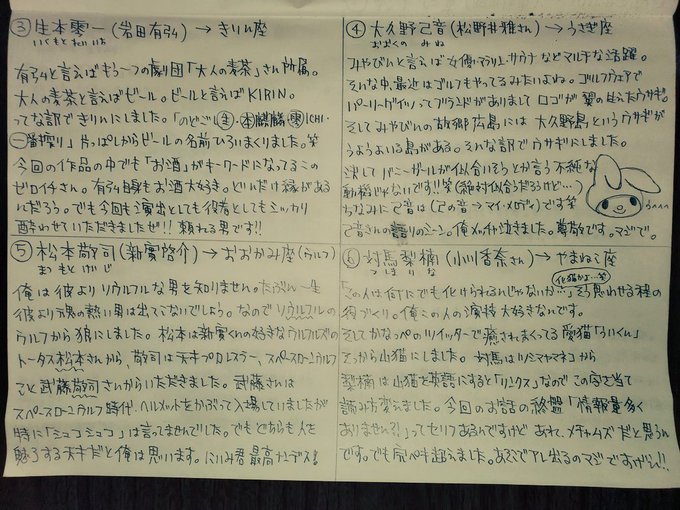 ③ 生本零一(岩田有弘)→きりん座
いくもと れいいち
有弘と言えばもう一つの劇団「大人の麦茶」さん所属。
大人の麦茶と言えばビール。ビールと言えばKIRIN。
ってな訳できりんにしました。「のどごし生・本麒麟・零ICHI・
一番搾り」片っぱしからビールの名前ひろいまくりました。笑
今回の作品の中でも「お酒」がキーワードになってるこの
ゼロイチさん。有弘自身もお酒大好き。どんだけ縁がある
んだろう。でも今回も演出としても役者としてもシッカリ
酔わせていただきましたゼ!!頼れる男です!!
④ 大久野己音(松野井雅さん)→うさぎ座
おおくの みね
みやびんと言えば女優・マラソン・サウナなどマルチな活躍。
そんな中、最近はゴルフもやってるみたいよね。ゴルフウェアで
パーリーゲイツってブランドがありましてロゴが翼の生えたウサギ。
そしてみやびんの故郷広島には大久野島というウサギが
うようよいる島がある。そんな訳でウサギにしました。
決してバニーガールが似合いそうとか言う不純な
動機じゃないです!!笑(絶対似合うだろうけど…)
ちなみに己音は(己の音→マイ・メロディ)です笑
己音さんの語りのシーン。俺メッチャ泣きました。尊敬です。マジで。
うへへへ
⑤ 松本敬司(新實啓介)→おおかみ座(ウルフ)
まつもと けいじ
俺は彼よりソウルフルな男を知りません。たぶん一生
彼より魂の熱い男は出てこないでしょう。なのでソウルフルの
ウルフから狼にしました。松本は新實くんの好きなウルフルズの
トータス松本さんから、敬司は天才プロレスラー、スペースローンウルフ
こと武藤敬司さんからいただきました。武藤さんは
スペースローンウルフ時代、ヘルメットをかぶって入場していましたが
特に「シュコシュコ」は言ってませんでした。でもどちらも人を
魅了する天才だと俺は思います。にいみ君最高ナンデス!
⑥ 対馬梨楠(小川香奈さん)→やまねこ座
つしま りな
(化猫かよ…笑)
「この人は何にでも化けられるんじゃないか…」そう思わせる程の
役づくり。俺この人の演技大好きなんです。
そしてかなっぺのツイッターで癒されまくってる愛猫「ういくん」
そっから山猫にしました。対馬はツシマヤマネコから
梨楠は山猫を英語にすると「リンクス」なのでこの字を当て
読み方変えました。今回のお話の終盤「情報量多く
ありません?!」ってセリフあるんですけどあれ、メチャムズだと思うん
です。でも完ペキ超えました。あそこでアレ出るのマジですげーん!!